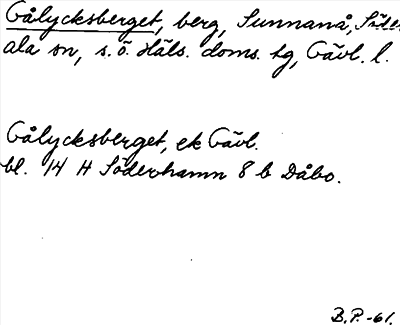 Gålycksberget, berg, Sunnanå, Söder
ala sn, s. ö. Häls. doms. tg, Gävl. l.
Gålycksberget, ek Gävl.
bl. 14 H Söderhamn 8 b Dåbo.
B.P. -61.